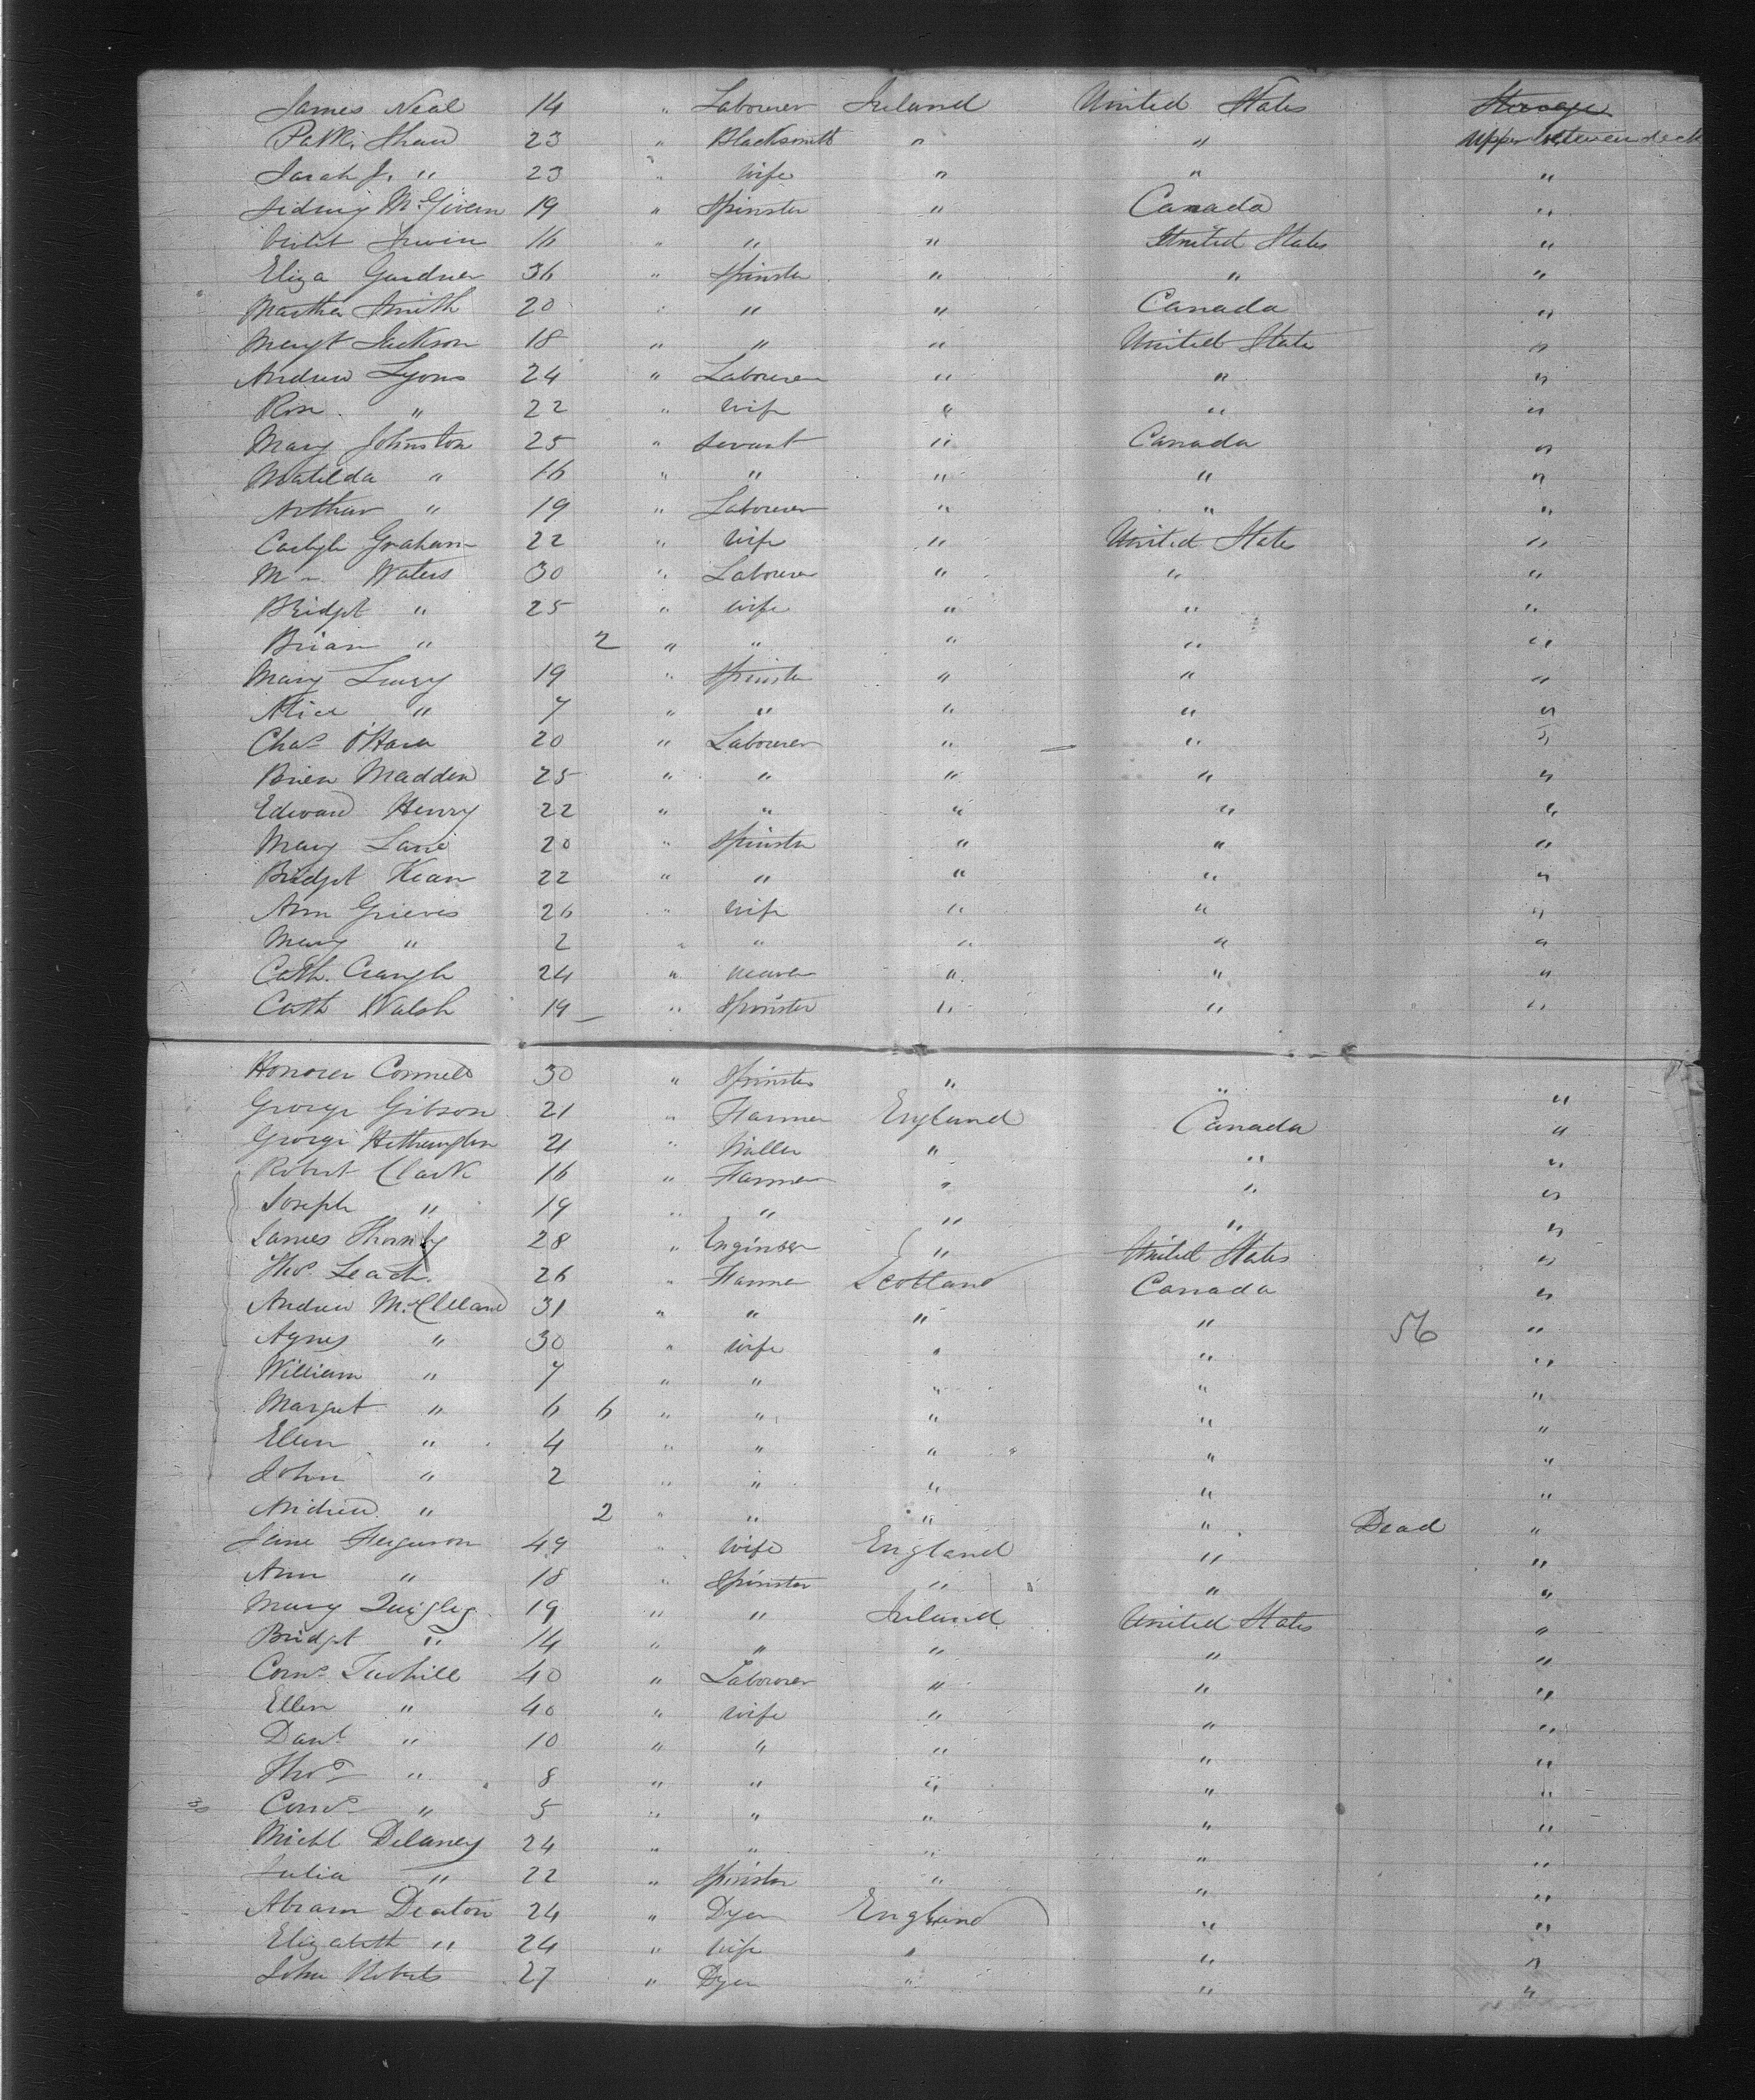 James Neal 14 " Labourer Ireland United States Steerage
Patk. Shaw 23 " Blacksmith " " Upper between deck
Sarah J. " 23 " Wife " " "
Sidney McGivern 19 " Spinster " Canada "
Violet Irwin 16 " " " United States "
Eliza Gardner 36 " Spinster " " "
Martha Smith 20 " " " Canada "
Margt Jackson 18 " " " United State "
Andrew Lyons 24 " Labourer " " "
Rose " 22 " Wife " " "
Mary Johnston 25 " Servant " Canada "
Matilda " 16 " " " " "
Arthur " 19 " Labourer " " "
Graham 22 " Wife " United States "
Waters 30 " Labourer " " "
Bridget " 25 " Wife " " "
Brian " 2 " " " " "
Mary 19 " Spinster " " "
Alice " 7 " " " " "
Chas O'Hara 20 " Labourer " " "
Brien Madden 25 " " " " "
Edward Henry 22 " " " " "
Mary Lane 20 " Spinster " " "
Bridget Kean 22 " " " " "
Ann Grieves 26 " Wife " " "
Mary " 2 " " " " "
Cath. 24 " " " "
Cath Walsh 19 " Spinster " " "
Honorer Connell 30 " Spinster " " "
George Gibson 21 " Farmer England Canada "
George Hetherington 21 " Miller " " "
Robert Clark 16 " Farmer " " "
Joseph " 19 " " " " "
James Thornby 28 " Engineer " United States "
Thos. Leach 26 " Farmer Scotland Canada "
Andrew McClleand 31 " " " " 56 "
Agnes " 30 " Wife " " "
William " 7 " " " " "
Margret " 6 6 " " " " "
Ellen " 4 " " " " "
John " 2 " " " " "
Andrew " 2 " " " " Dead "
Jane Ferguson 49 " Wife England " "
Ann " 18 " Spinster " " "
Mary Quigley 19 " " Ireland United States "
Bridget " 14 " " " " "
Corns Tuohill 40 " Labourer " " "
Ellen " 40 " Wife " " "
Danl " 10 " " " " "
Thos " 8 " " " " "
Corns " 5 " " " " "
Michl Delaney 24 " " " " "
Julia " 22 " Spinster " " "
Abram Deaton 24 " Dyer England " "
Elizabeth " 24 " Wife " " "
John Roberts 27 " Dyer " " "